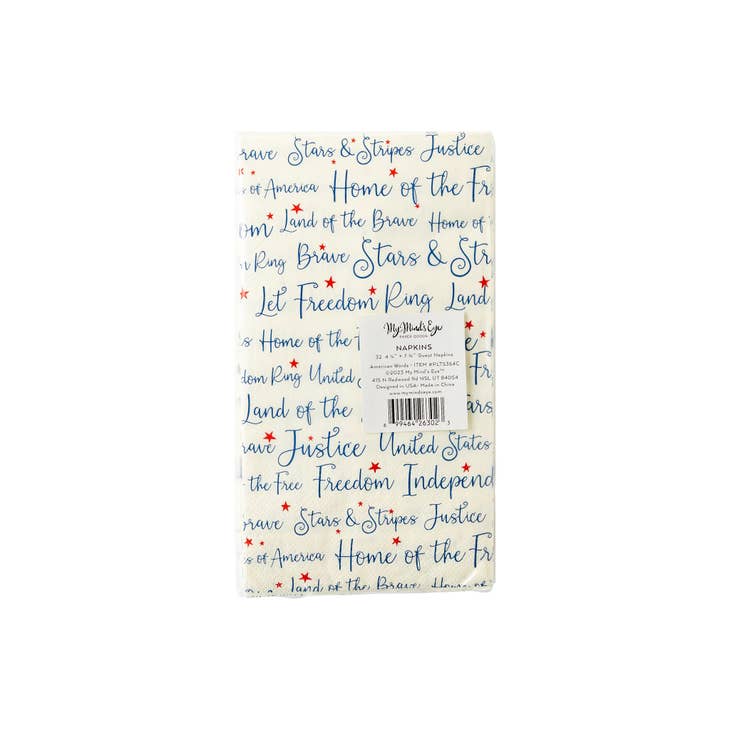 rave Stars & Stripes Justice
s of America Home of the Fr
om Land of the Brave Home of
m Ring Brave Stars & St
Let Freedom Ring Land
s Home of the F
My Mind's Eye
PAPER GOODS
NAPKINS
American Words - ITEM #PLTS364C
©2023 My Mind's Eye™
415 N Redwood Rd NSL UT 84054
Designed in USA • Made in China
www.mymindseye.com
6 99464 26302 3
edom Ring United
Land of the
rave Justice United States
the Free Freedom Independ
rave Stars & Stripes Justice
s of America Home of the Fr
Land of the Brave Home of